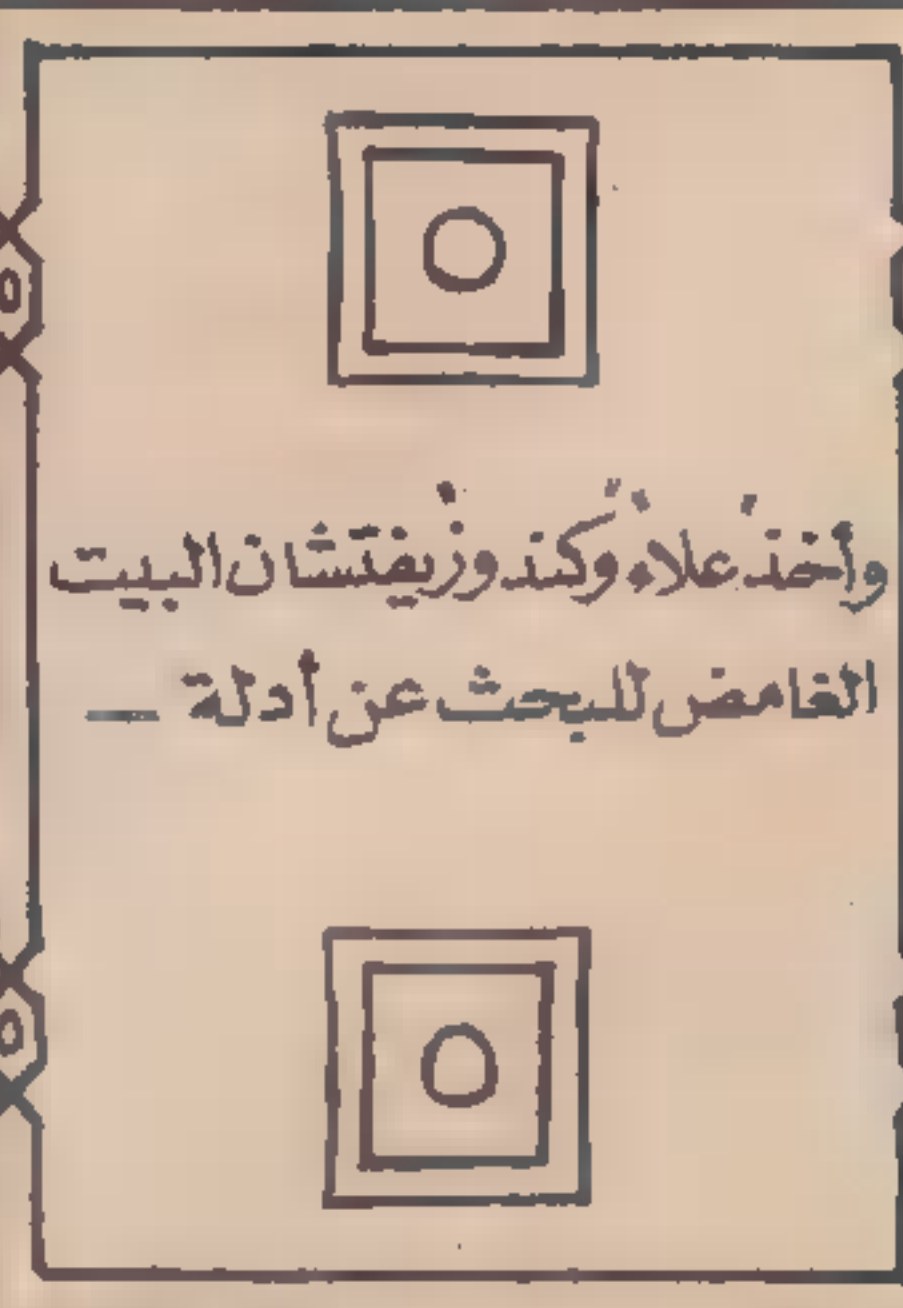 وأخذ علاء وكندوز يفتشان البيت
الغامض للبحث عن أدلة —